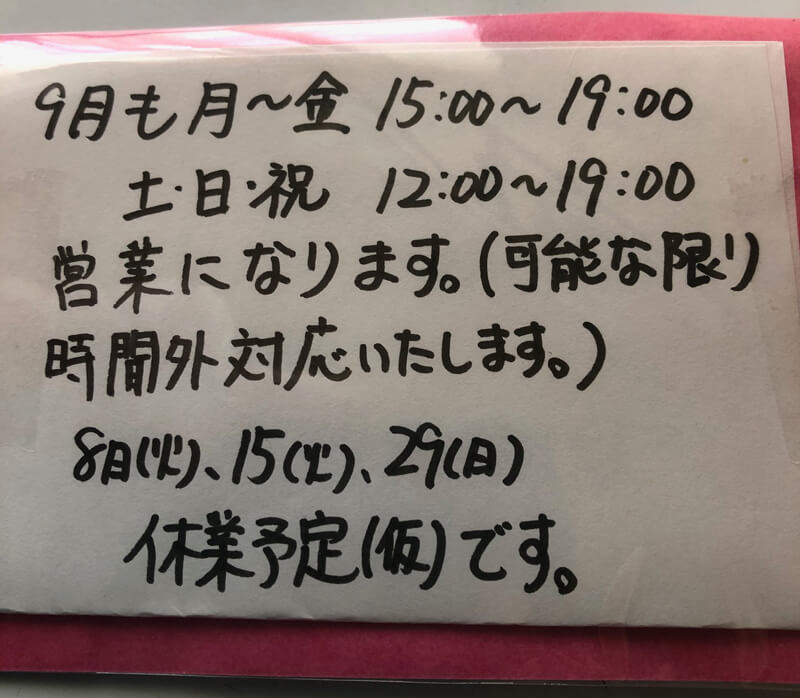 9月も月〜金 15:00〜19:00
土・日・祝 12:00〜19:00
営業になります。(可能な限り
時間外対応いたします。)
8日(火)、15(火)、29(日)
休業予定(仮)です。